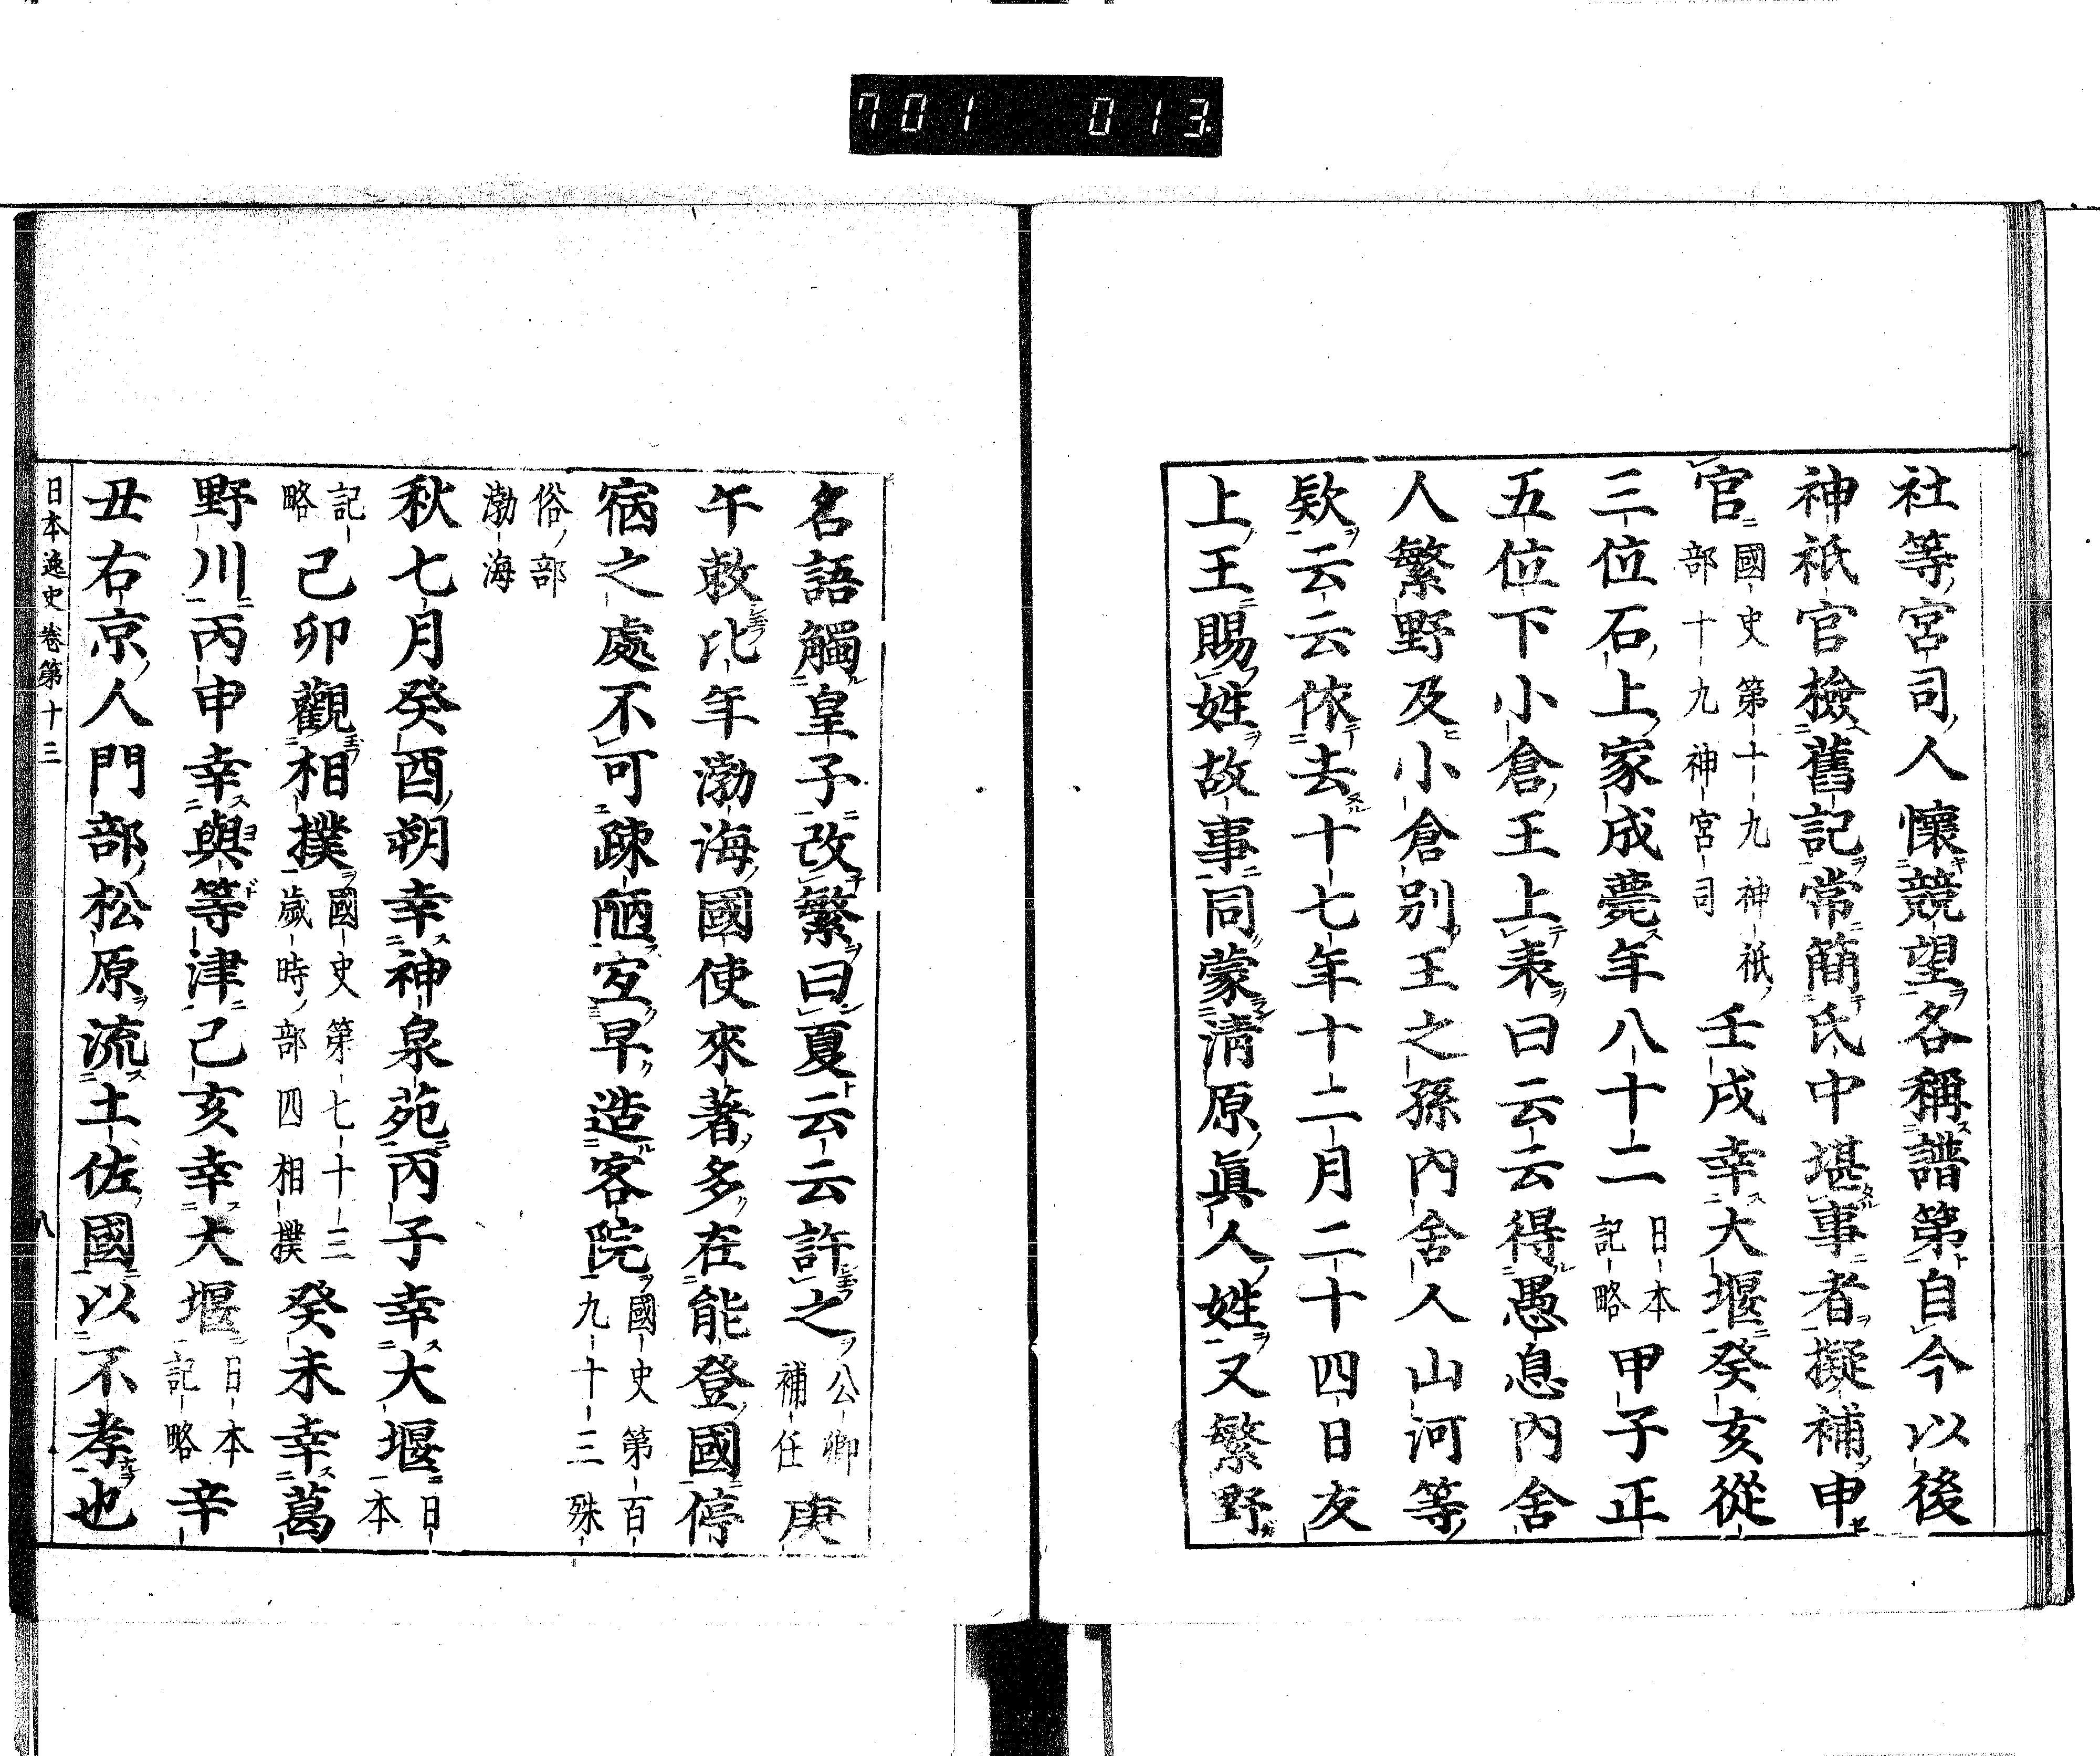 701 013
社等宮司人懷競望各稱譜第自今以後
神祇官檢舊記常簡氏中堪事者擬補申
官 國史第十九神祇部十九神宮司 壬戌幸大堰癸亥從
三位石上家成薨年八十二 日本記略 甲子正
五位下小倉王上表曰云云得愚息內舍
人繁野及小倉別王之孫內舍人山河等
欵云云依去十七年十二月二十四日友
上王賜姓故事同蒙清原眞人姓又繁野
名語觸皇子改繁曰夏云云許之 公卿補任 庚
午敕比年渤海國使來著多在能登國停
宿之處不可疎陋宜早造客院 國史第百九十三殊
俗部渤海
秋七月癸酉朔幸神泉苑丙子幸大堰 日本
記略 己卯觀相撲 國史第七十三歲時部四相撲 癸未幸葛
野川丙申幸與等津己亥幸大堰 日本記略 辛
丑右京人門部松原流土佐國以不孝也
日本逸史卷第十三 八